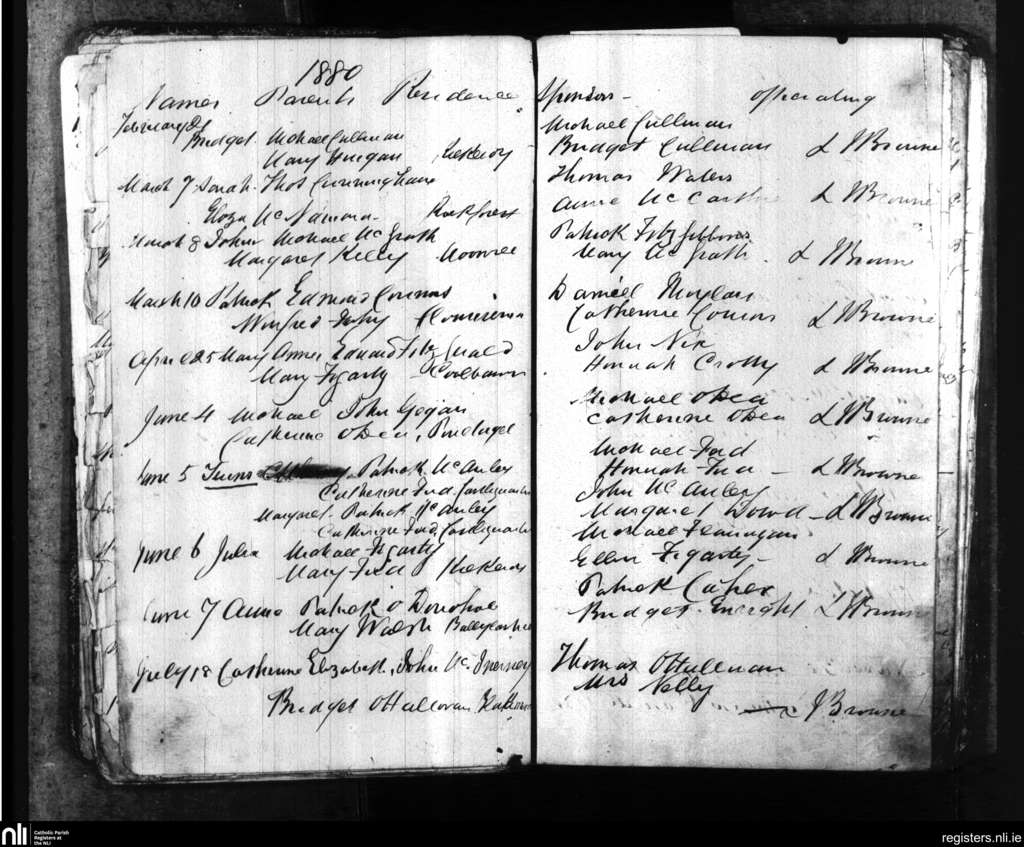 1880
Names Parents Residence
February
Bridget Michael Cullinan
Mary
March 7 Sarah Thos Cunningham
Eliza McNamara Rockforest
March 8 John Michael McGrath
Margaret Kelly
March 10 Patrick Edmond Connors
Winfred
April 25 Mary Anne Edward Fitzgerald
Mary Fogarty
June 4 Michael John Gegan
Catherine O Dea,
June 5 Twins Patrick McAuley
Catherine Ford
Margaret Patrick McAuley
Catherine Ford
June 6 Julia Michael Fogarty
Mary Ford
June 7 Anne Patrick O Donohoe
Mary Walsh
July 18 Catherine Elizabeth, John McInerney
Bridget O Halloran
Sponsors - Officiating
Michael Cullinan
Bridget Cullinan J Browne
Thomas Waters
Annie McCarthy J Browne
Patrick Fitzgibbons
Mary McGrath J Browne
Daniel Moylan
Catherine Connors J Browne
John Nix
Hannah Crotty J Browne
Michael O Dea
Catherine O Dea J Browne
Michael Ford
Hannah Ford - J Browne
John McAuley
Margaret Dowd - J Browne
Michael Flannigan
Ellen Fogarty - J Browne
Patrick
Bridget Enright J Browne
Thomas O Hallinan
Mrs Nelly
J Browne
nli Catholic Parish
Registers at
the NLI
registers.nli.ie